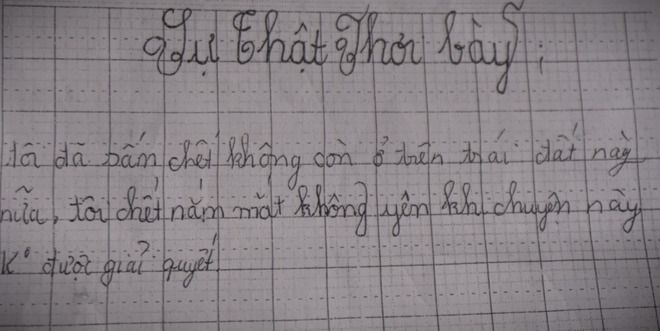 Sự thật Phơi bày:
tôi đã bấm chết không còn ở trên trái đất này
nữa, tôi chết nằm mắt không yên khi chuyện này
K° được giải quyết